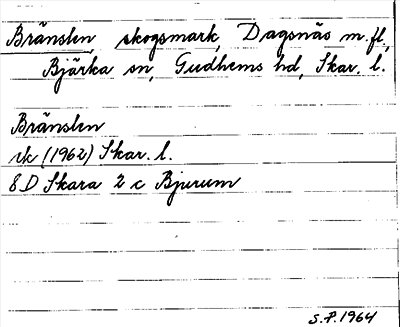 Bränslen, skogsmark, Dagsnäs m.fl,
Bjärka sn, Gudhems hd, Skar. l.
Bränslen
ek (1962) Skar. l.
8D Skara 2 c Bjurum
S.P. 1964